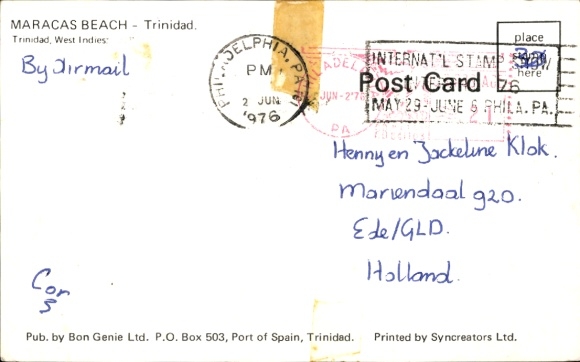 MARACAS BEACH - Trinidad.
Trinidad, West Indies.
By Airmail
PHILADELPHIA, PA
PM
2 JUN
1976
JUN-2'76
PA
INTERNAT'L STAMP
76
MAY 29-JUNE 6 PHILA. PA.
Post Card
place
here
Henny en Jackeline Klok.
Mariendaal 920.
Ede/GLD.
Holland.
Cor
Pub. by Bon Genie Ltd. P.O. Box 503, Port of Spain, Trinidad. Printed by Syncreators Ltd.